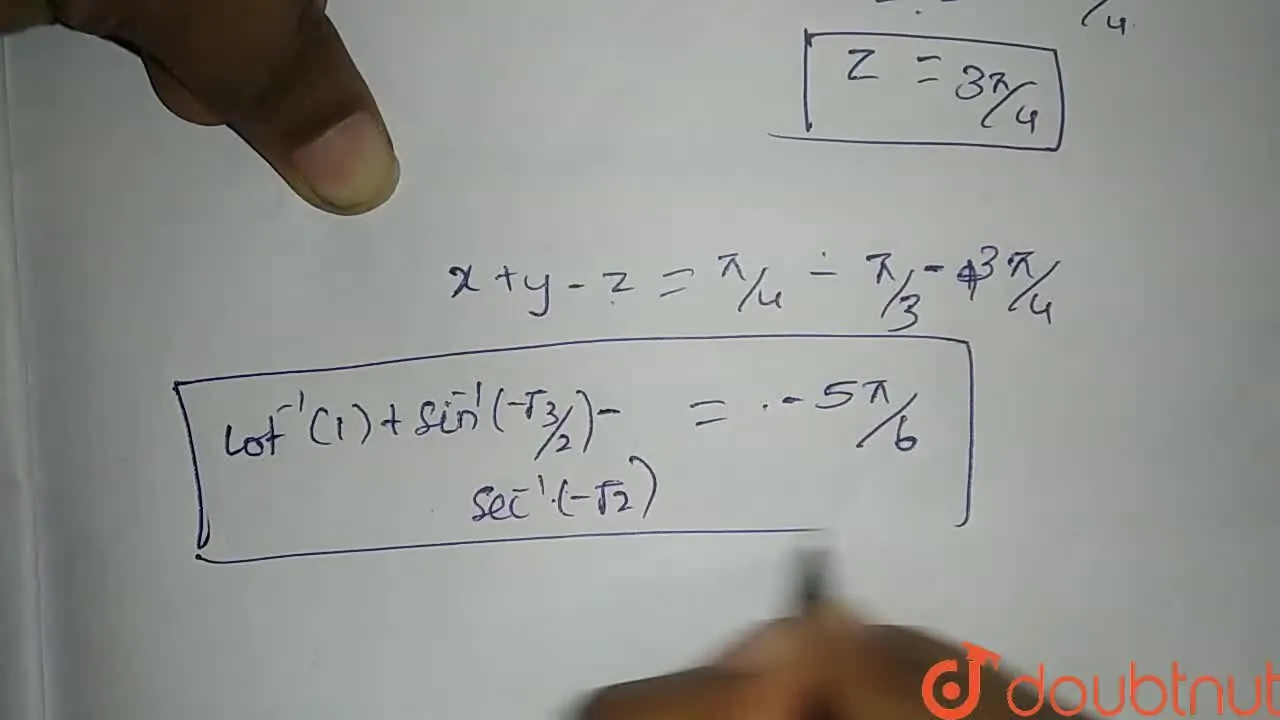 π/4
z = 3π/4
x + y - z = π/4 - π/3 - 3π/4
cot⁻¹(1) + sin⁻¹(-√3/2) - = -5π/6
sec⁻¹(-√2)
doubtnut